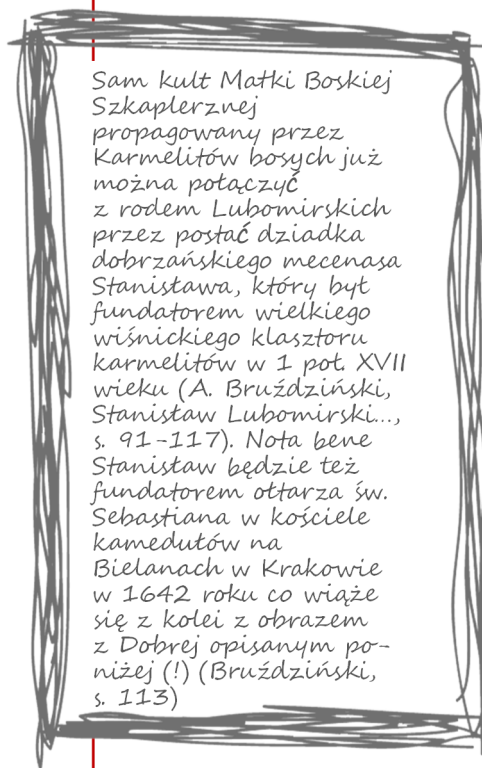 Sam kult Matki Boskiej
Szkaplerznej
propagowany przez
Karmelitów bosych już
można połączyć
z rodem Lubomirskich
przez postać dziadka
dobrzańskiego mecenasa
Stanisława, który był
fundatorem wielkiego
wiśnickiego klasztoru
karmelitów w 1 poł. XVII
wieku (A. Bruździński,
Stanisław Lubomirski...,
s. 91-117). Nota bene
Stanisław będzie też
fundatorem ołtarza św.
Sebastiana w kościele
kamedułów na
Bielanach w Krakowie
w 1642 roku co wiąże
się z kolei z obrazem
z Dobrej opisanym po-
niżej (!) (Bruździński,
s. 113)